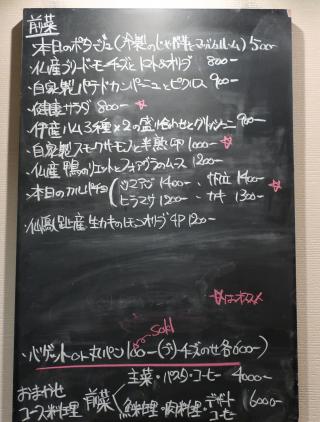 前菜
・本日のポタージュ(冷製のじゃが芋とマッシュルーム) 500ー
・仏産ブリードモーチーズとトマト&オリーブ 800ー
・自家製パテドカンパーニュとピクルス 900ー
・健康サラダ 800ー ☆
・伊産ハム3種×2の盛り合わせとグリッシーニ 900ー
・自家製スモークサーモンと半熟卵 1000ー ☆
・仏産鴨のリエットとフォアグラのムース 1200ー
・本日のカルパッチョ シマアジ 1400ー、帆立 1400ー ☆
ヒラマサ 1200ー、カキ 1300ー
・仙鳳趾産 生カキのレモンオリーブ 4P 1200ー
☆はオススメ
Sold
・バゲット or 丸パン 100ー(ブリーチーズのせ各600ー)
おまかせ
コース料理
前菜
主菜・パスタ・コーヒー 4000ー
魚料理・肉料理・デザート
コーヒー 6000ー